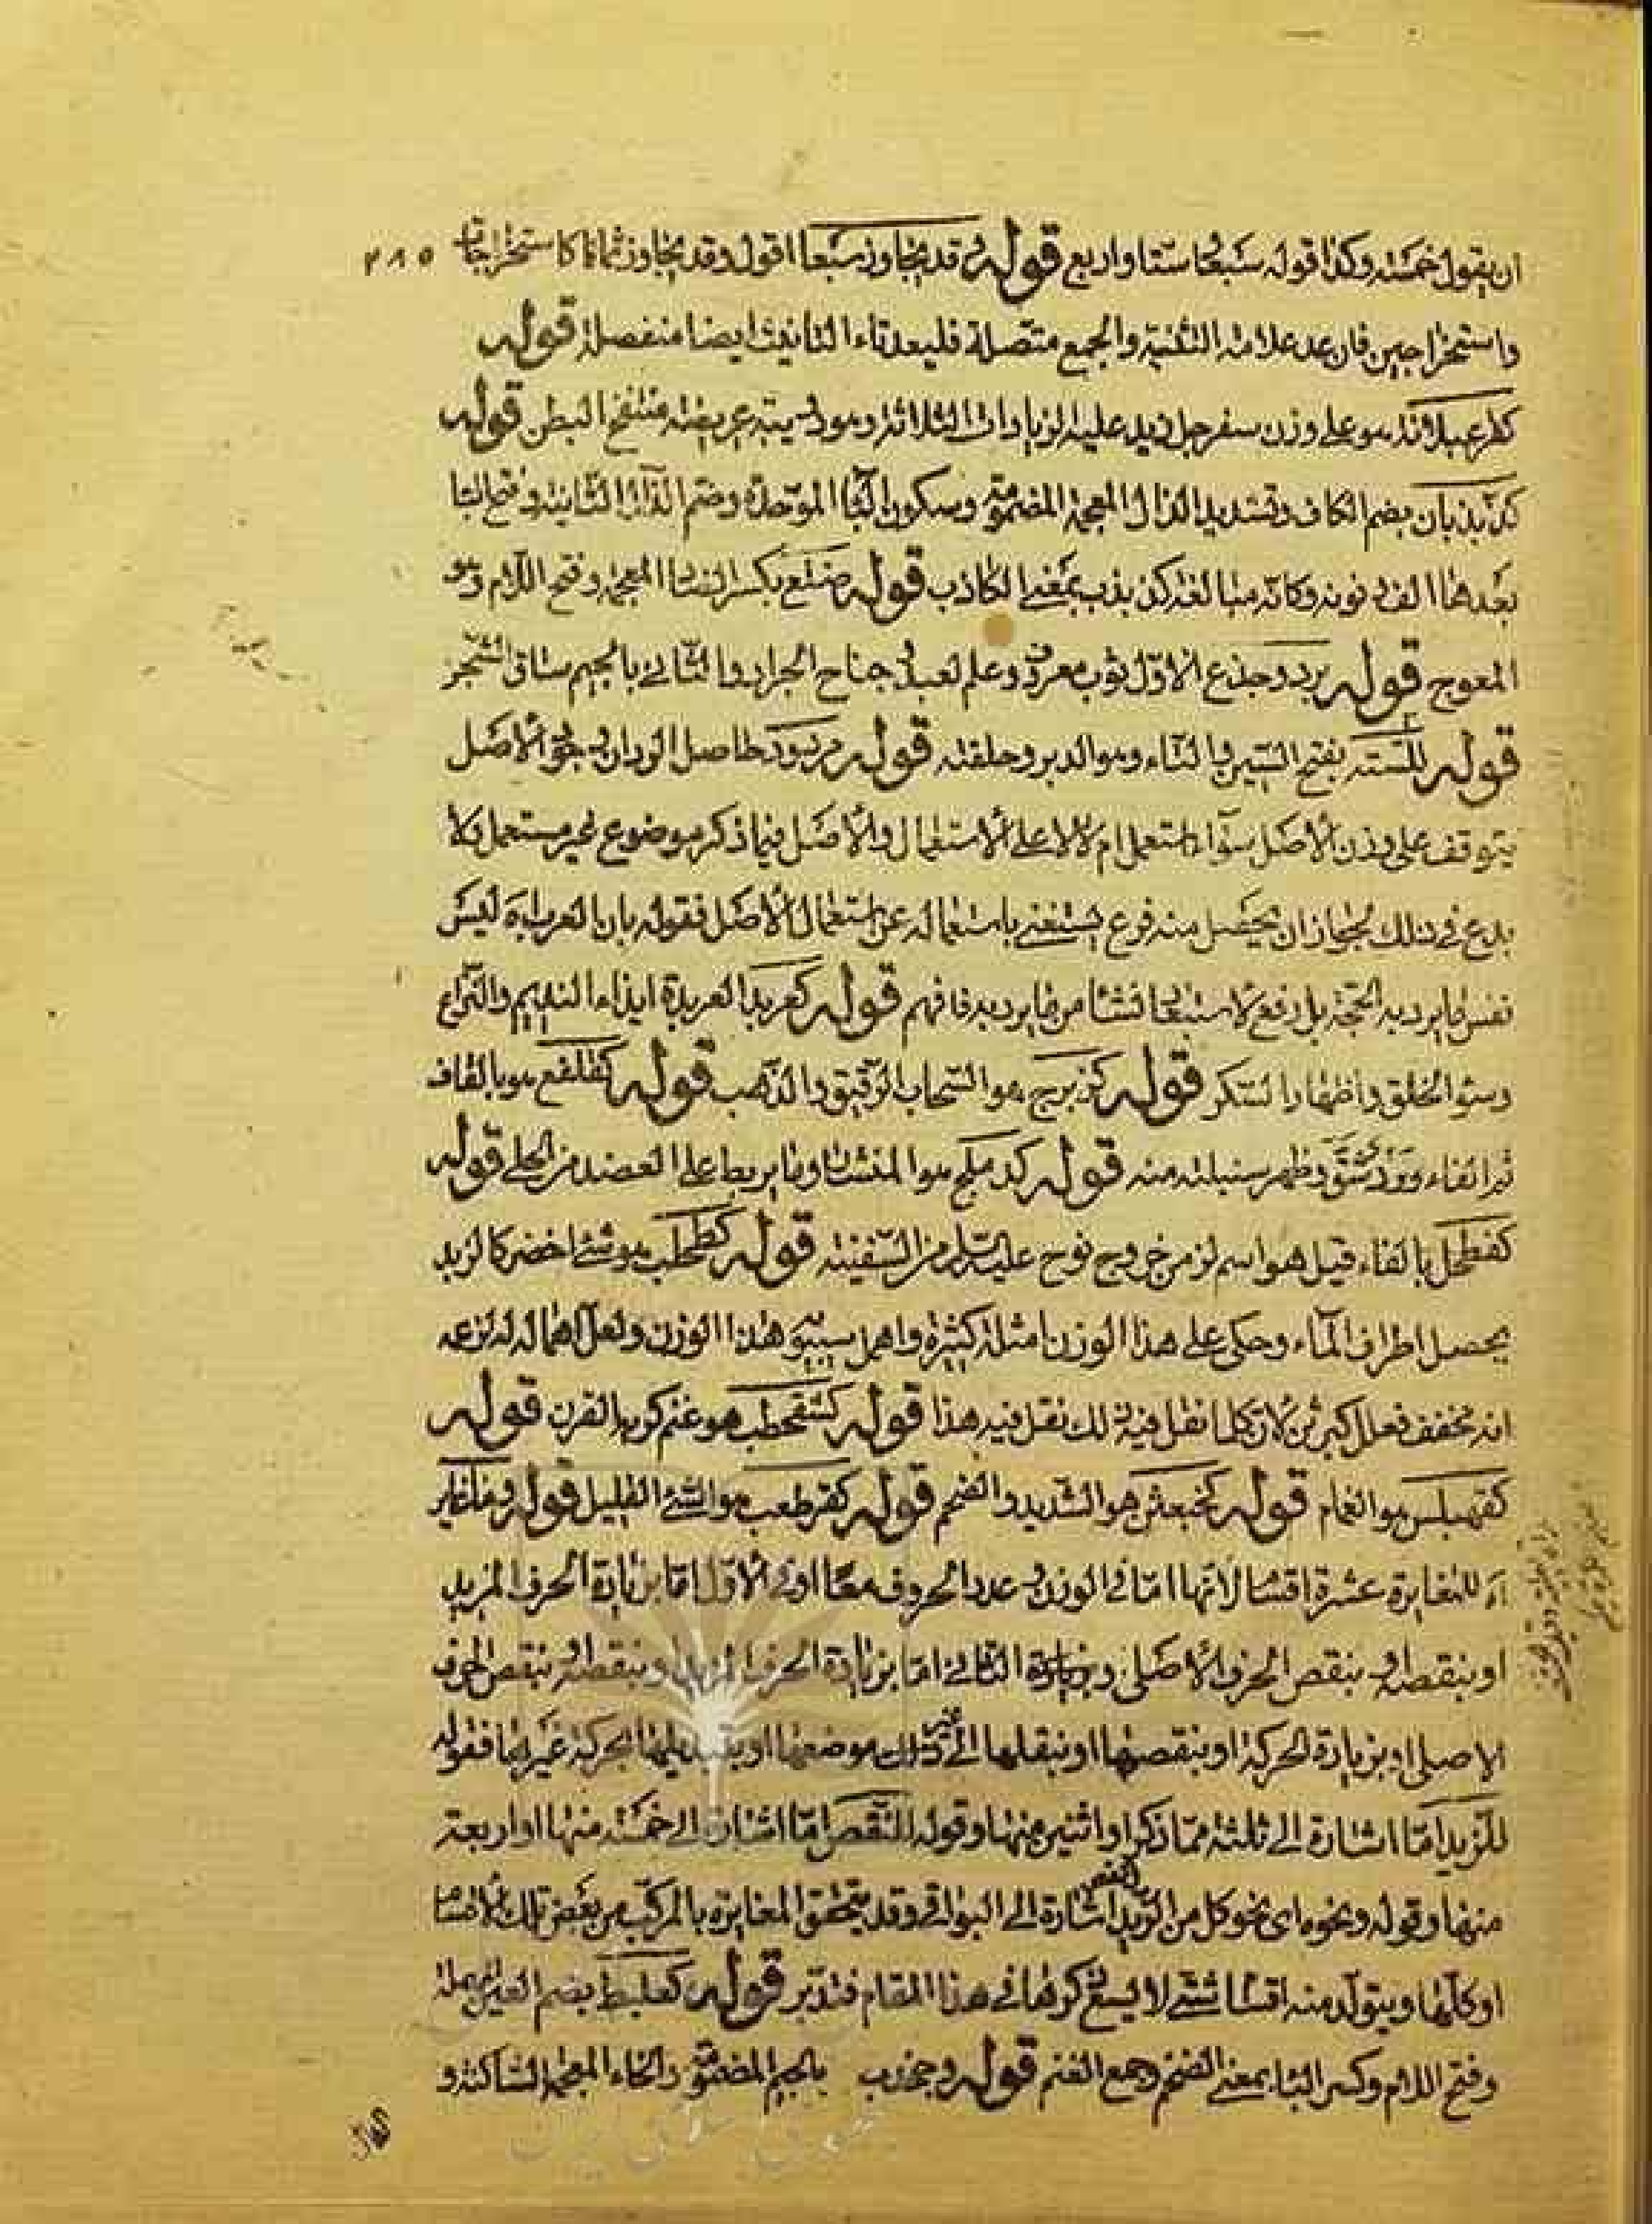 ان يقول خمسة وكذا قوله سبعا ستا واربع قوله قد يجاوز سبعا اقول وقد يجاوز ثمانا كاستخراجات ٢٨٥
واستخراجين فان عد علامة التثنية والجمع متصلة فليعد تاء التانيث ايضا منفصلة قوله
كقرعبلانة هو على وزن سفرجل زيد عليه الزيادات الثلاثة دويبة عريضة منتفخ البطن قوله
كذبذبان بضم الكاف وتشديد الذال المعجمة المضمومة وسكون البا الموحدة وضم الذال الثانية وفتح البا
بعدها الف ونون وكانه مبالغة كذبذب بمعنى الكاذب قوله ضلع بكسر الضاد المعجمة وفتح اللام وهو
المعوج قوله برد وجذع الاول ثوب معروف وعلم لعبد جناح الجراد والثاني بالجيم ساق الشجر
قوله للسته بفتح السين والتاء وهو الدبر وحلقته قوله مردود حاصل الرد ان الاصل
يتوقف على وزن الاصل سواء استعمل ام لا لا على الاستعمال والاصل فيما ذكر موضوع غير مستعمل ولا
بدع في ذلك لجواز ان يحصل منه فرع يستغنى باستعماله عن استعمال الاصل فقوله بان العرب اه ليس
نفس ما يرد به الحجة بل رفع لاستبعاد نشأ من ما يرد به فافهم قوله كعربد العربدة ايذاء النديم والنزاع
وسوء الخلق واظهار السكر قوله كزبرج هو السحاب الرقيق والذهب قوله كقلفع هو بالقاف
ثم الفاء وظهر سنبلته منه قوله كدملج هو ما يربط على العضد من الحلي قوله
كفطحل بالفاء قيل هو اسم لزمن خروج نوح عليه السلام من السفينة قوله كطحلب هو شئ اخضر كالزبد
يحصل اطراف الماء وحكى على هذا الوزن امثلة كثيرة واهمل سيبويه هذا الوزن ولعل اهماله لزعمه
انه مخفف فعلل كبرثن لان كلما نقل فيه ذلك نقل فيه هذا قوله كشقحطب هو غنم كريه القرن قوله
كقهبلس قوله كخبعثن هو الشديد والضخم قوله كقرطعب هو الشئ القليل قوله وما غاير
اه للمغايرة عشرة اقسام لانها اما في الوزن عدد الحروف معا او في الاول اما بزيادة الحرف المزيد
او بنقصه بنقص الحرف الاصلي الثاني اما بزيادة الحرف المزيد او بنقصه بنقص الحرف
الاصلي او بزيادة الحركة او بنقصها او بنقلها الى غير موضعها او بتبديلها بحركة غيرها فقوله
للزيد اما اشارة الى ثلثة مما ذكر او اثنين منها وقوله النقص اما اشارة الى خمسة منها او اربعة
منها وقوله ونحوه اى نحو كل من الزيد والنقص اشارة الى البواقي وقد يتحقق المغايرة بالمركب من بعض تلك الاقسام
او كلها ويتولد منه اقسام شتى لا يسع ذكرها في هذا المقام فتدبر قوله كعلبط بضم العين المهملة
وفتح اللام وكسر البا بمعنى الضخم وجمع الغنم قوله وجخدب بالجيم المضمومة والخاء المعجمة الساكنة و